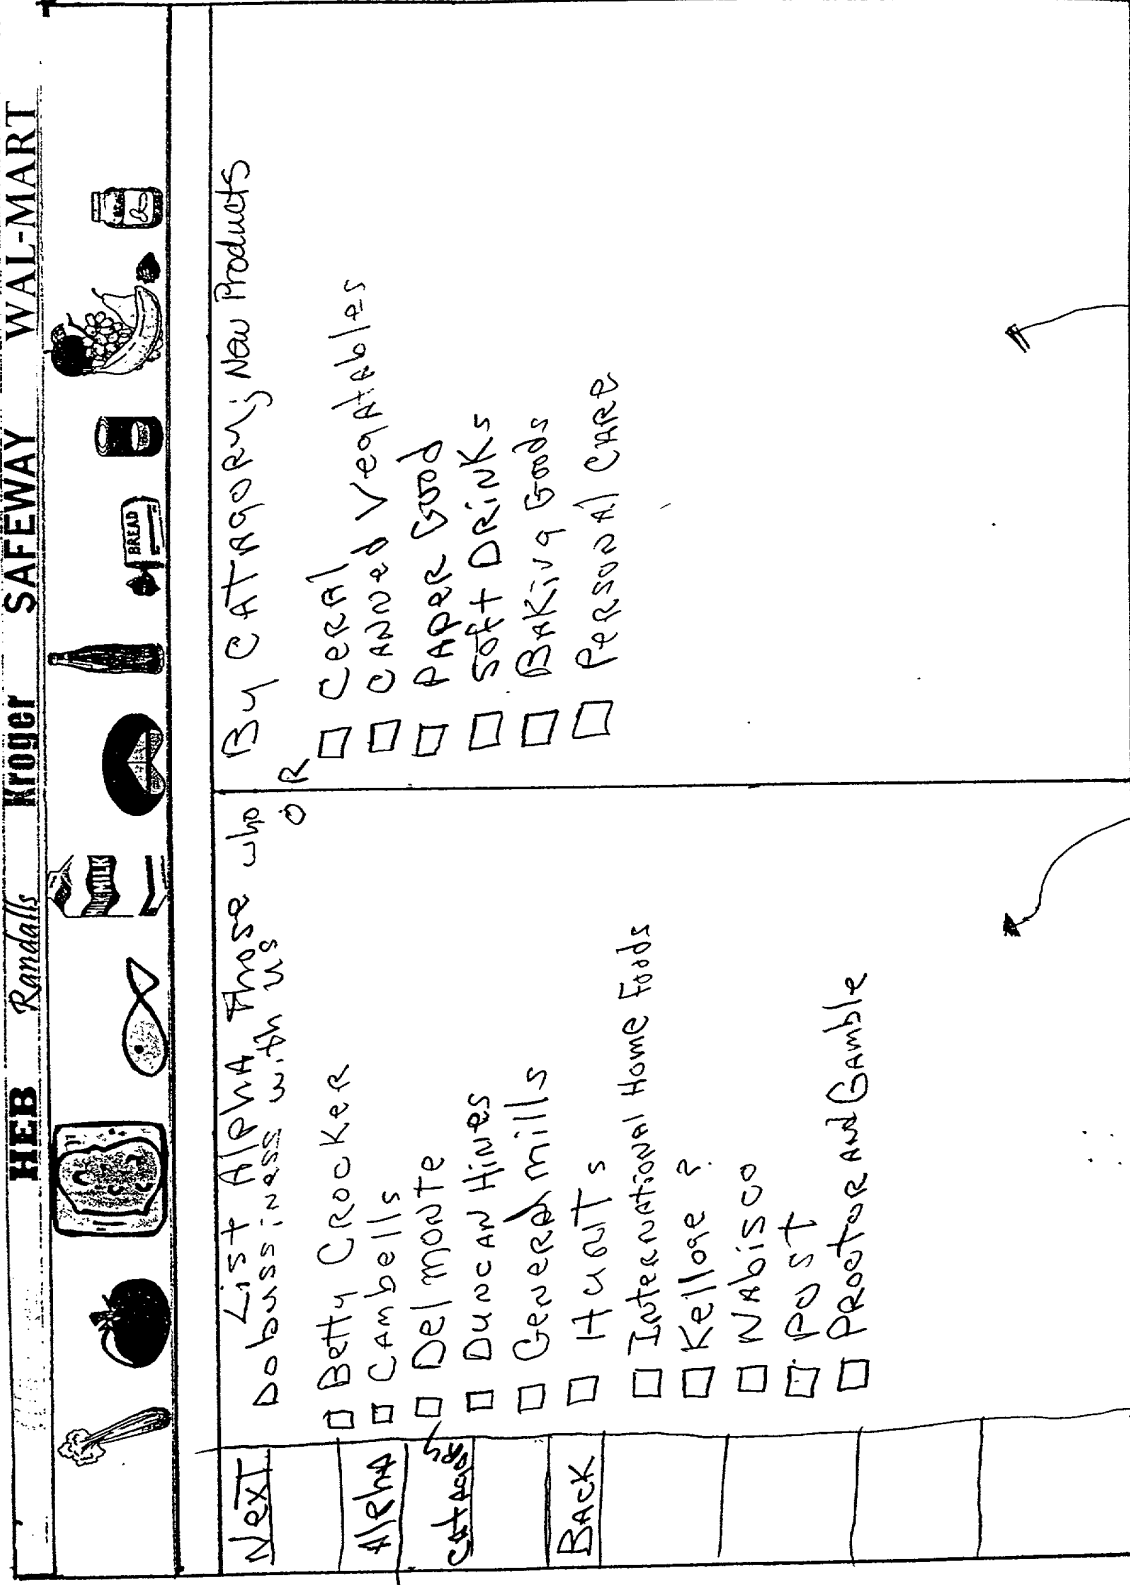 HEB Randalls Kroger SAFEWAY WAL-MART
MILK
BREAD
Next
Alpha
CATAGORY
BACK
List Alpha Those who
Do bussiness with us
Betty CROCKER
CAmbells
Del monte
DUNCAN HiNes
GeNeRAl mills
HuNTs
INteRNAtioNAl Home Foods
Kelloge ?
NAbisco
POST
PRoctoR AND GAmble
OR
By CATAGORY; New Products
CERAl
CANNed VegAtAbles
PAPER Good
Soft DRiNKs
BAKiNg Goods
PERSONAl CARE